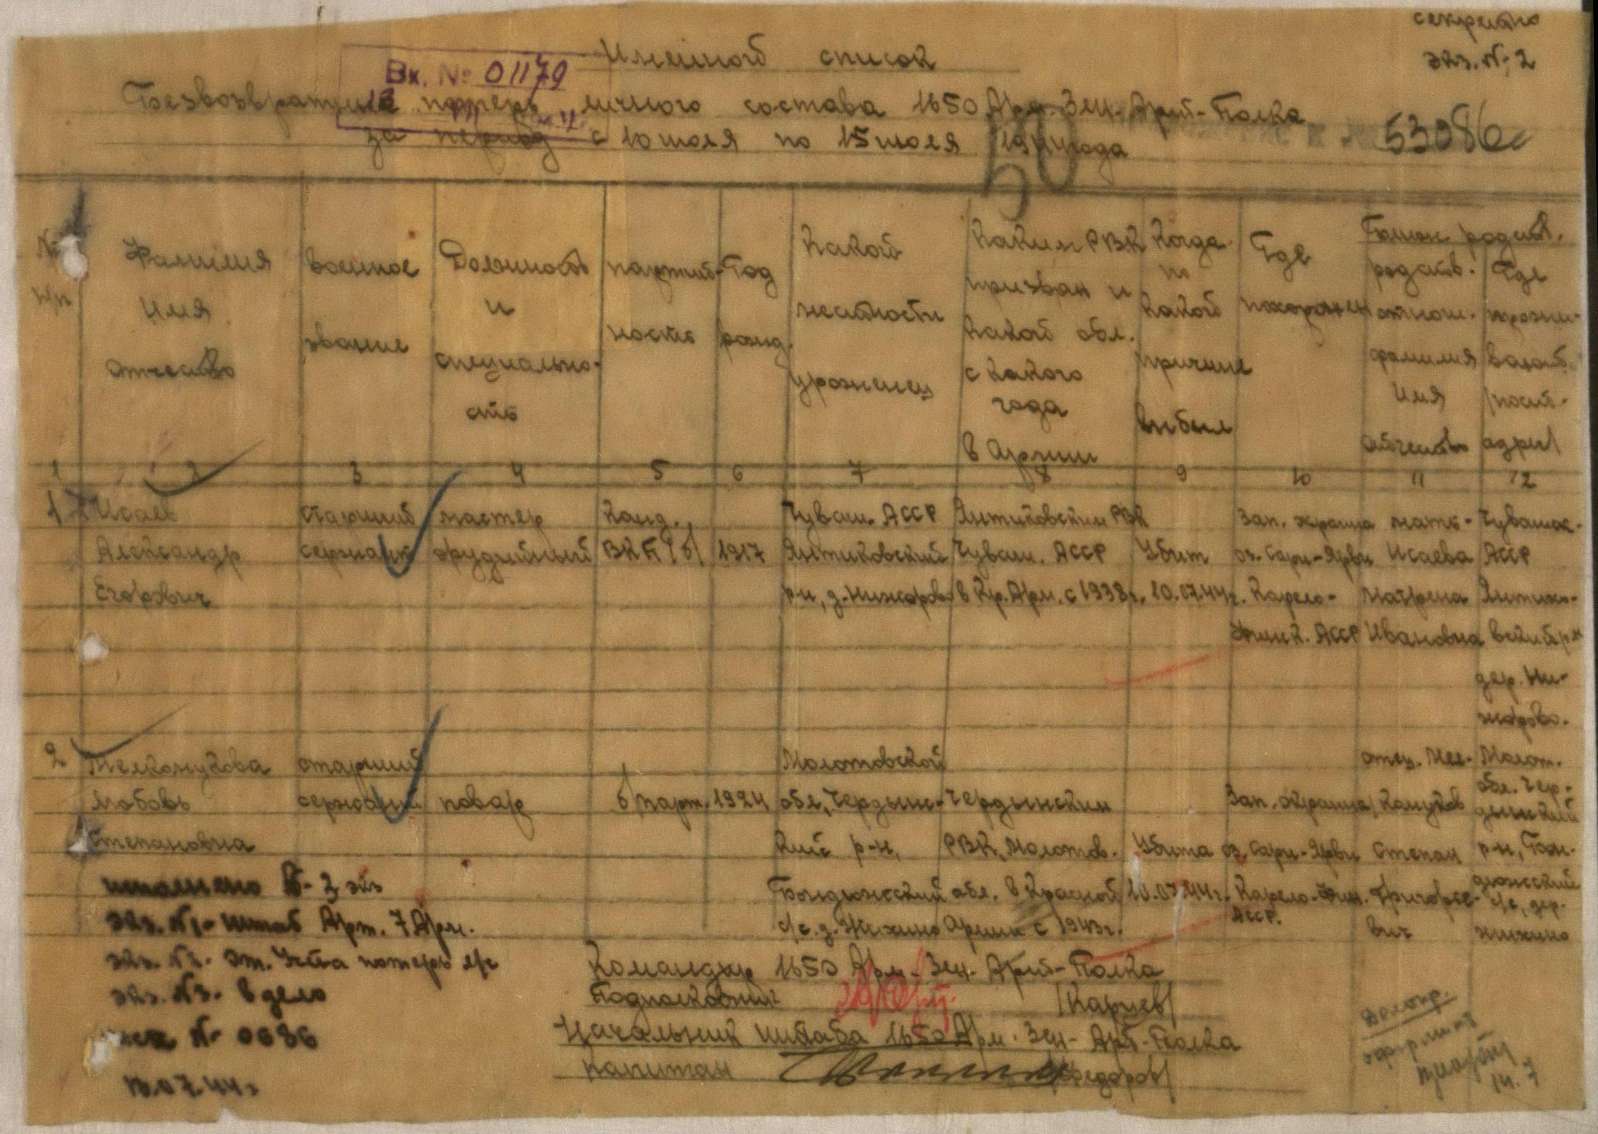 секретно
экз. № 2
Именной список
Вх. № 01179
Безвозвратных потерь личного состава 1650 Арм. Зен. Арт. Полка
за период с 10 июля по 15 июля 1944 года
50
53086с
№ п/п
Фамилия Имя Отчество
военное звание
Должность и специально-сть
партий-ность
Год рожд.
Какой местности уроженец
Каким РВК призван и какой обл. с какого года в Армии
Когда по какой причине выбыл
Где похоронен
Ближ. родств.
родств. отнош. фамилия Имя отчество
Где прожи-вают /почт. адрес/
1 2 3 4 5 6 7 8 9 10 11 12
1 Исаев старший мастер Канд. Чуваш. АССР Янтиковским РВК Зап. окраина мать - Чувашск.
Александр сержант орудийный ВКП/б/ 1917 Янтиковский Чуваш. АССР Убит оз. Сари-Ярви Исаева АССР
Егорович р-н, д. Нижарово в Кр. Арм. с 1938г. 10.07.44г. Карело- Матрена Янтико-
Финск. АССР Ивановна вский р-н
дер. Ни-
жарово.
2 старший Молотовской отец. Мел- Молот.
Любовь сержант повар б/парт. 1924 обл, Чердынс- Чердынским Зап. окраина комуков обл. Чер-
дынский
Степановна кий р-н, РВК, Молотов. Убита оз. Сари-Ярви Степан р-н, Бон-
исполнено в 3 экз Бондюжский обл. в Красной 10.07.44г. Карело-Фин. Григорье- дюжский
экз. №1 - штаб Арт. 7 Арм. с/с. д. Армии с 1943г. АССР. вич с/с, дер.
экз. №2 - От. Учета потерь л/с Командир 1650 Арм. Зен. Арт. Полка
экз. №3 - в дело Подполковник /Карцев/
№ 0686 Начальник штаба 1650 Арм. Зен. Арт. Полка
10.07.44г Капитан /Федоров/